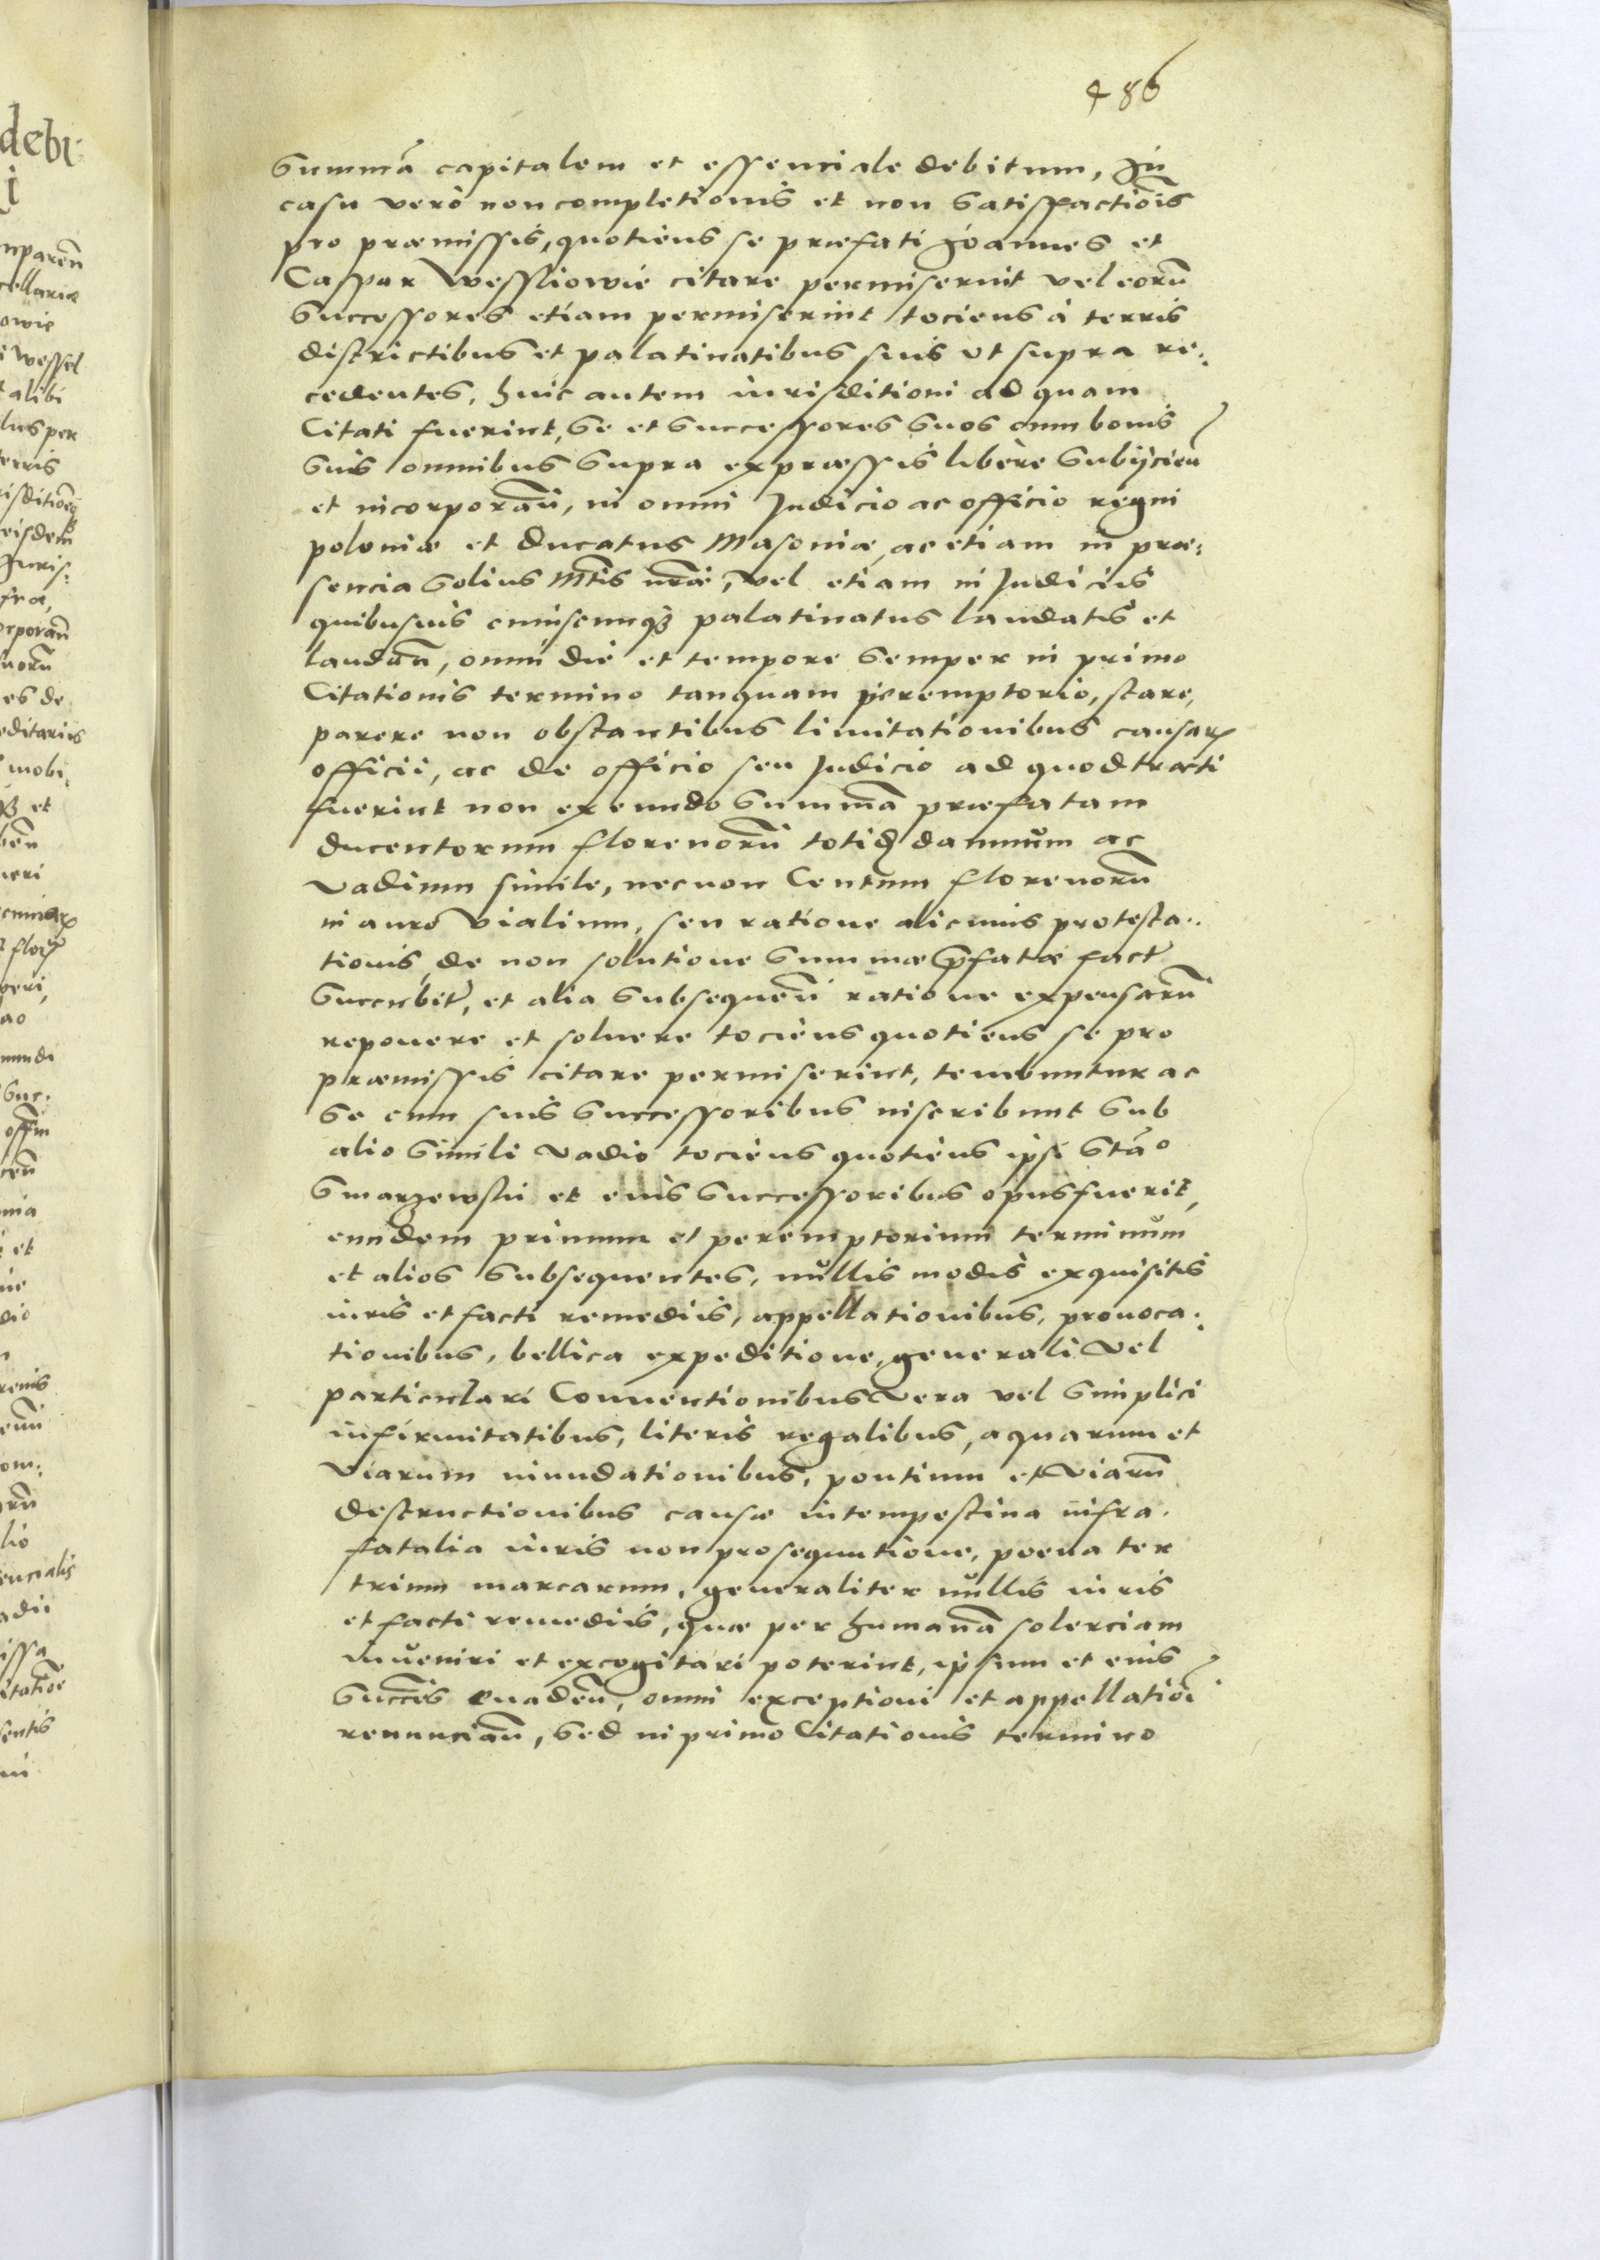 486
summã capitalem et essenciale debitum, In
casu verò non completionis et non satisfactiõis
pro præmissis, quotiens se præfati Joannes et
Caspar Wessliowie citare permiserint vel eorũ
successores etiam permiserint tociens à terris
districtibus et palatinatibus suis ut supra re:
cedentes, huic autem iurisditioni ad quam
Citati fuerint, se et successores suos cum bonis
suis omnibus supra expræssis libère subijcieñ
et incorporañ, in omni Judicio ac officio regni
poloniæ et Ducatus Masoniæ, ac etiam in præ:
sencia solius Mtis nrãe, vel etiam in Judiciis
quibusuis cuiuscunqȝ palatinatus laudatis et
laudañ, omni die et tempore semper in primo
Citationis termino tanquam peremptorio, stare,
parere non obstantibus limitationibus causarꝝ
officii, ac de officio seu Judicio ad quod tracti
fuerint non exeundo summã præfatam
ducentorum florenorũ totiđ damnum ac
Vadium simile, necnon Centum florenorũ
in auro Vialium, seu ratione alicuius protesta:
tionis, de non solutione summæ p̃fatæ fact
succubit, et alia subsequeñ ratione expensarũ
reponere et soluere tociens quotiens se pro
præmissis citare permiserint, tenebuntur ac
se cum suis successoribus inscribunt sub
alio simili Vadio tociens quotiens ipsi Stã°
Smarzewski et eius successoribus opus fuerit,
eundem primum et peremptorium terminum
et alios subsequentes, nullis modis exquisitis
iuris et facti remediis, appellationibus, prouoca:
tionibus, bellica expeditione, generali Vel
particulari Conuentionibus Vera vel simplici
infirmitatibus, literis regalibus, aquarum et
Viarum inundationibus, pontium et Viarũ
destructionibus causæ intempestiua infra
fatalia iuris non prosequutione, poena ter
trium marcarum, generaliter nullis iuris
et facti remediis, quæ per humanã solerciam
inueniri et excogitari poterint, ipsum et eius
succẽs euadeñ, omni exceptioni et appellatiõi
renunciañ, sed in primo Citationis termino